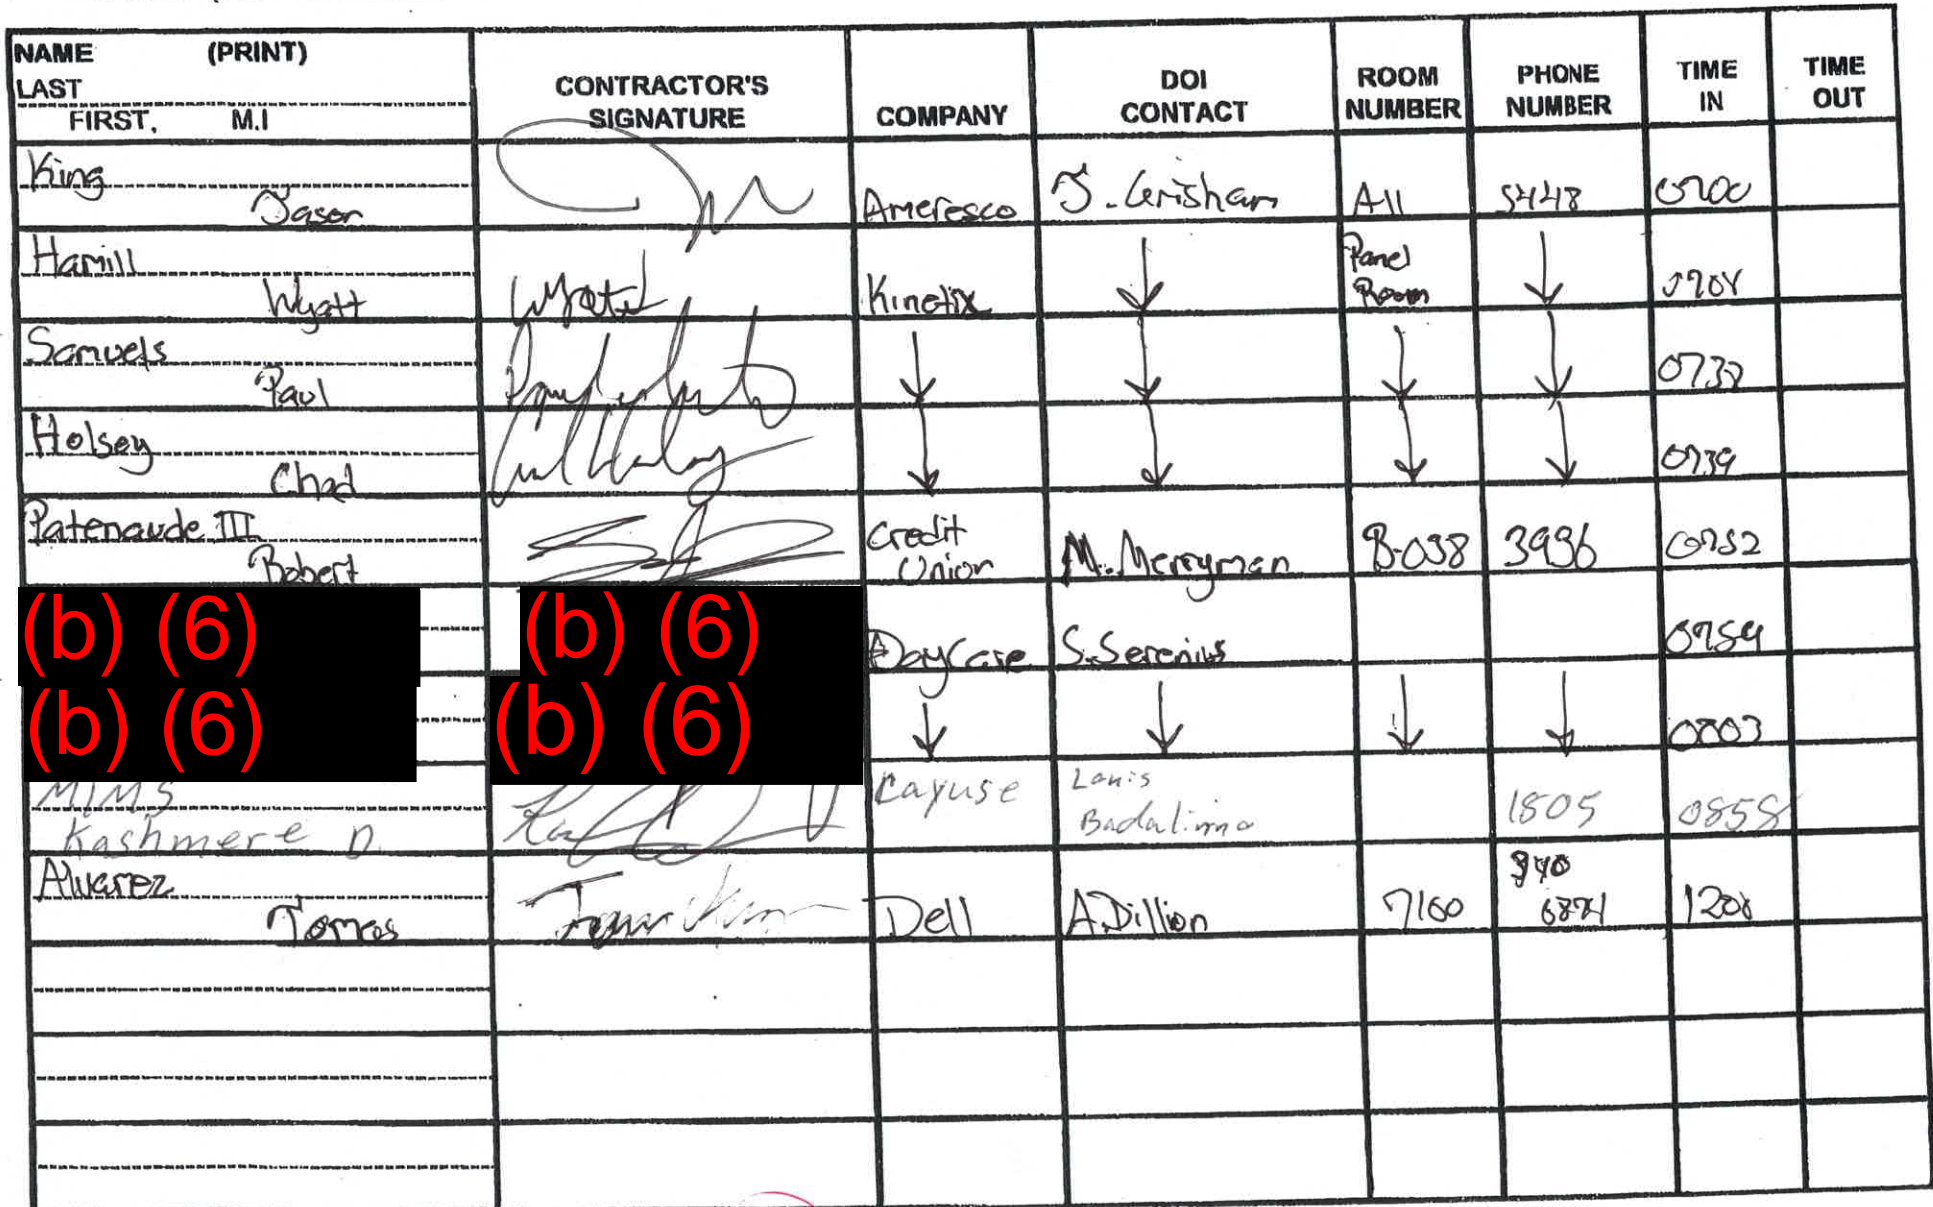 NAME (PRINT)
LAST
FIRST, M.I
CONTRACTOR'S
SIGNATURE
COMPANY
DOI
CONTACT
ROOM
NUMBER
PHONE
NUMBER
TIME
IN
TIME
OUT
King
Jason
Ameresco
J. Grisham
All
5448
0700
Hamill
Wyatt
Wyatt
Kinetix
↓
Panel
Room
↓
Samuels
Paul
↓
↓
↓
↓
Holsey
Chad
↓
↓
↓
↓
0739
Patenaude III
Robert
Credit
Union
M. Merryman
B-038
3936
0752
(b) (6)
(b) (6)
DayCare
S. Serenius
0759
(b) (6)
(b) (6)
↓
↓
↓
↓
0803
MIMS
Kashmere D.
Cayuse
Badalinno
1805
0858
Alvarez
Tomas
Dell
A. Dillion
7160